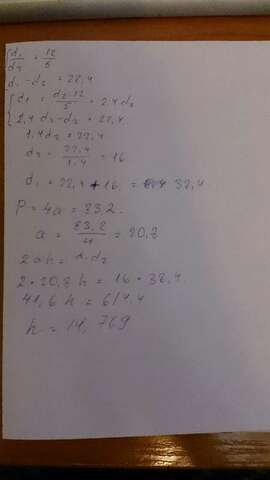 d₁/d₂ = 12/5
d₁ - d₂ = 22,4
d₁ = d₂·12/5 = 2,4 d₂
2,4 d₂ - d₂ = 22,4
1,4 d₂ = 22,4
d₂ = 22,4/1,4 = 16
d₁ = 22,4 + 16 = 38,4
P = 4a = 83,2.
a = 83,2/4 = 20,8
2ah = d₁·d₂
2·20,8 h = 16·38,4.
41,6 h = 614,4
h = 14,769